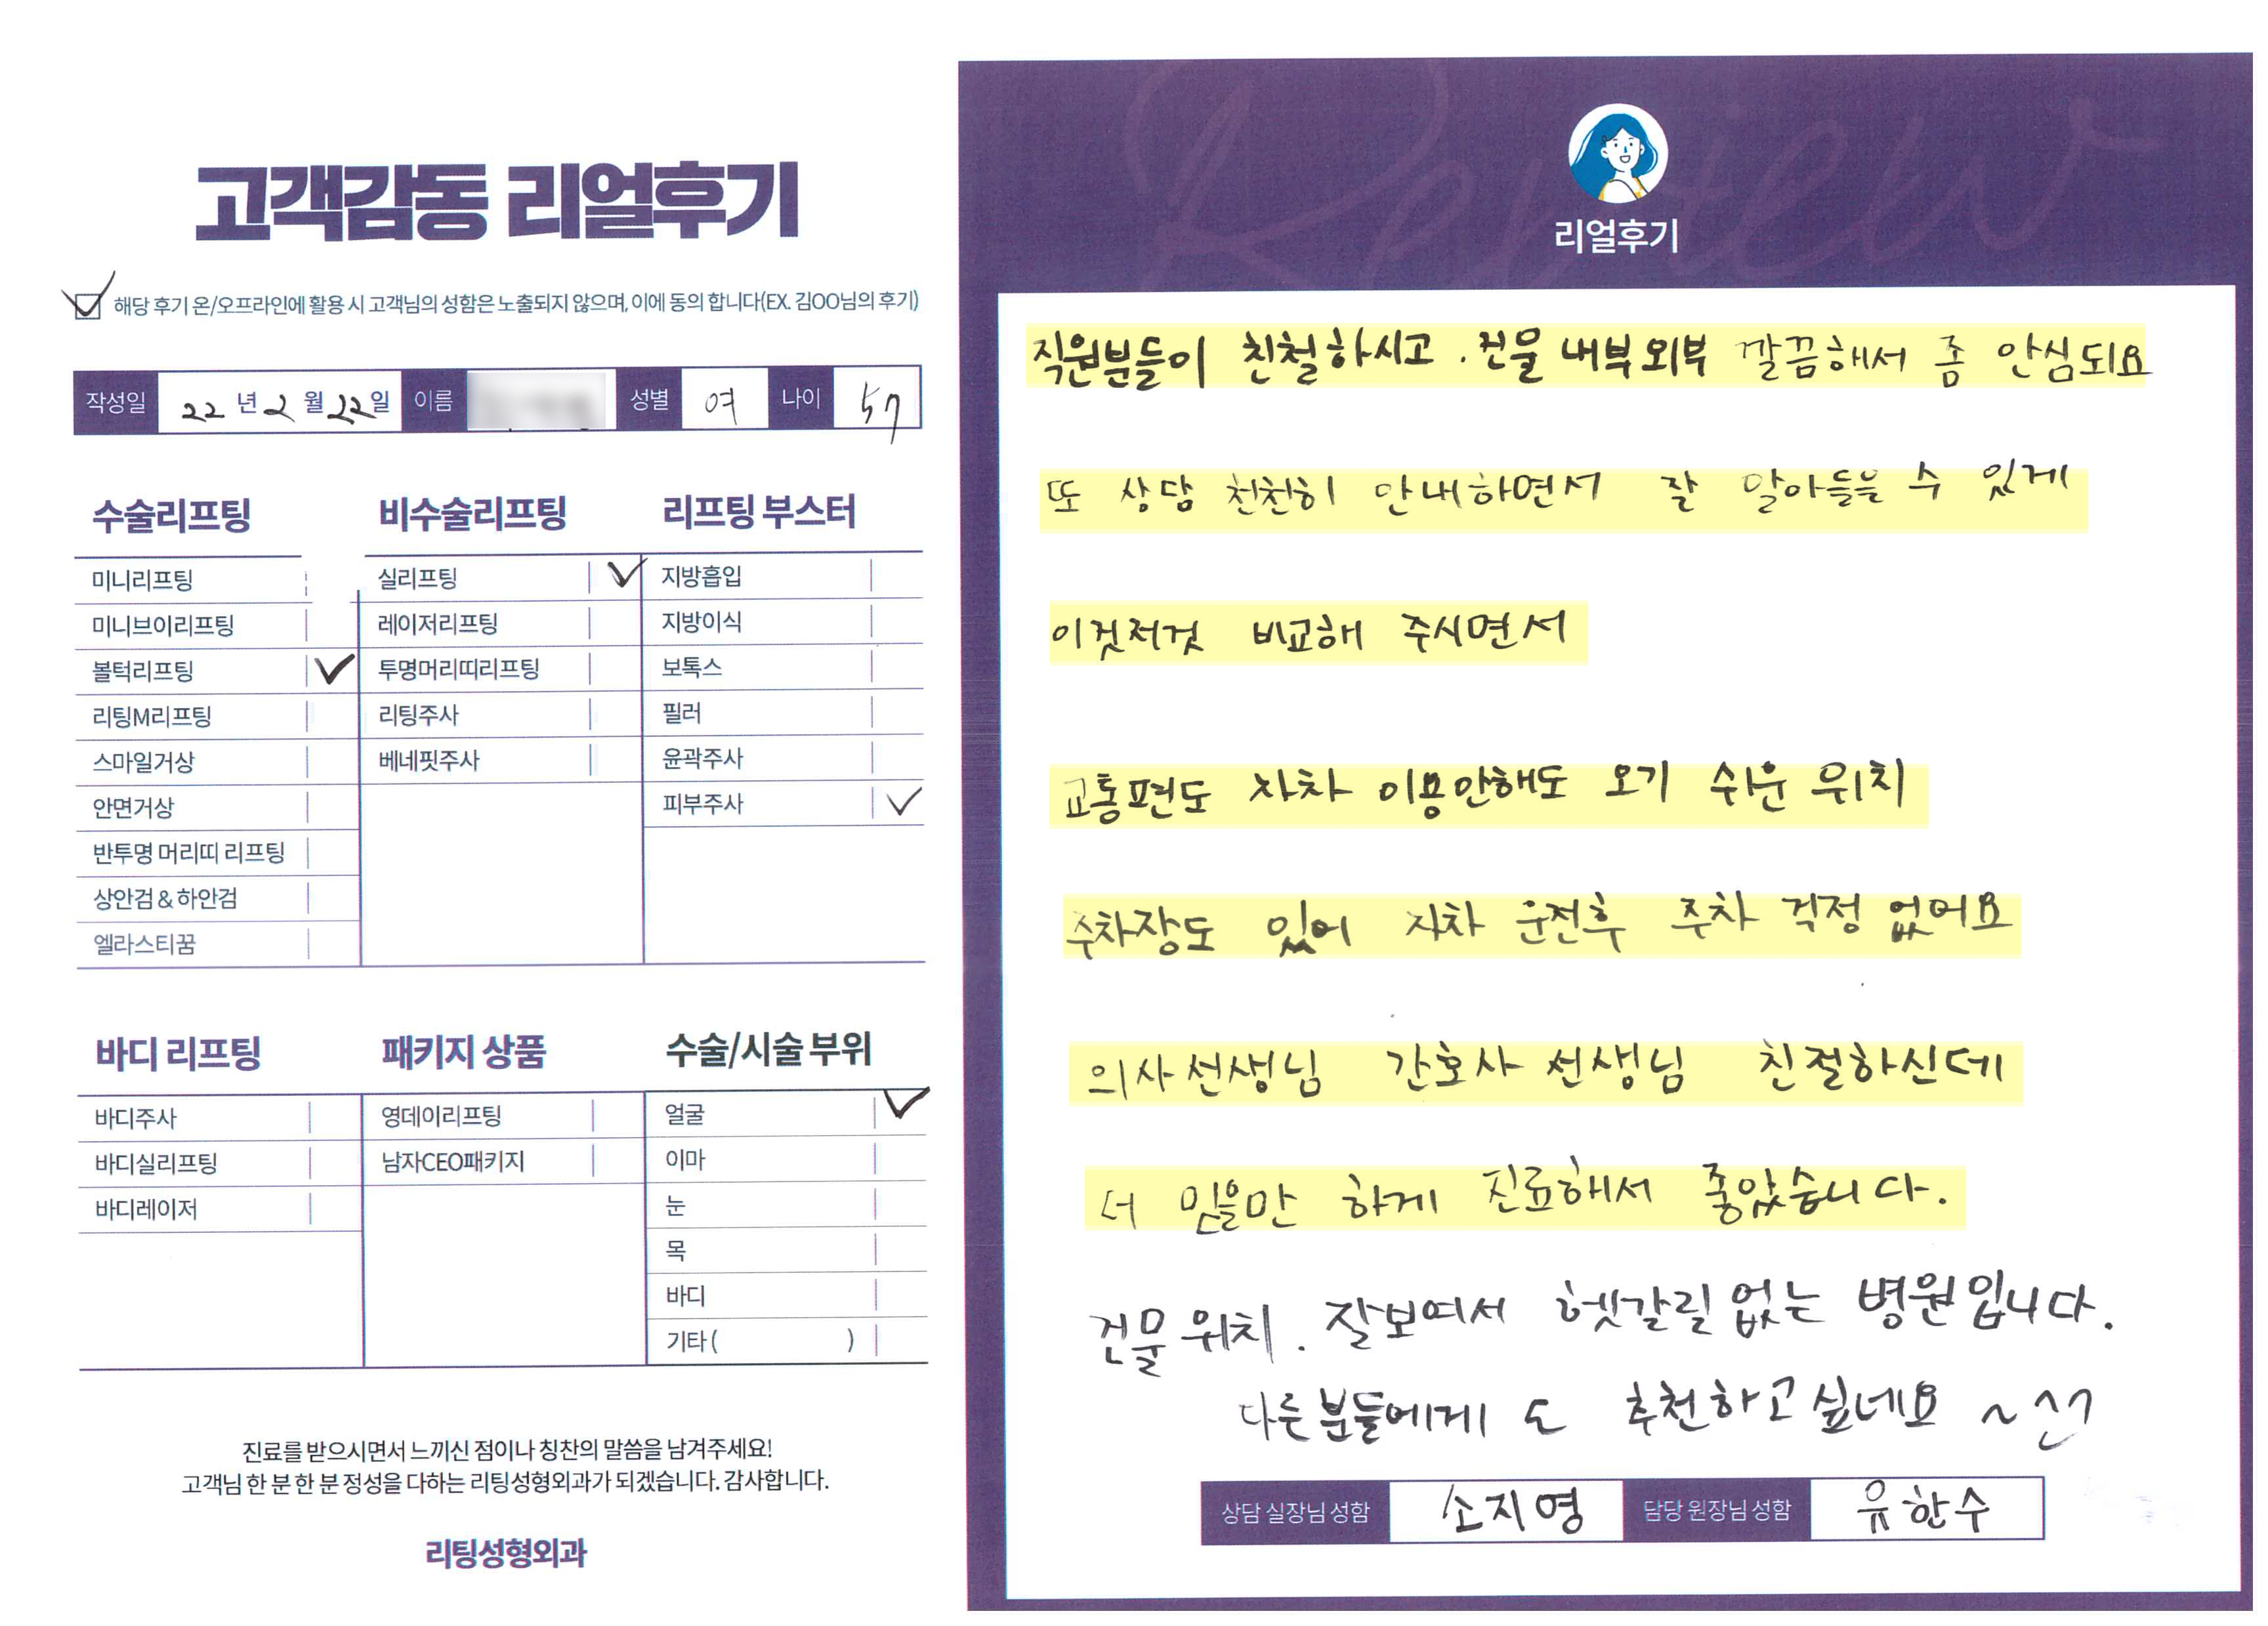 고객감동 리얼후기
해당 후기 온/오프라인에 활용 시 고객님의 성함은 노출되지 않으며, 이에 동의 합니다(EX. 김OO님의 후기)
작성일 22 년 2 월 22 일 이름 성별 여 나이 57
수술리프팅
미니리프팅
미니브이리프팅
볼턱리프팅
리팅M리프팅
스마일거상
안면거상
반투명 머리띠 리프팅
상안검 & 하안검
엘라스티꿈
비수술리프팅
실리프팅
레이저리프팅
투명머리띠리프팅
리팅주사
베네핏주사
리프팅 부스터
지방흡입
지방이식
보톡스
필러
윤곽주사
피부주사
바디 리프팅
바디주사
바디실리프팅
바디레이저
패키지 상품
영데이리프팅
남자CEO패키지
수술/시술 부위
얼굴
이마
눈
목
바디
기타 ( )
진료를 받으시면서 느끼신 점이나 칭찬의 말씀을 남겨주세요!
고객님 한 분 한 분 정성을 다하는 리팅성형외과가 되겠습니다. 감사합니다.
리팅성형외과
Review
리얼후기
직원분들이 친철하시고 . 건물 내부외부 깔끔해서 좀 안심되요
또 상담 천천히 안내하면서 잘 알아들을 수 있게
이것저것 비교해 주시면서
교통편도 자차 이용안해도 오기 쉬운 위치
주차장도 있어 자차 운전후 주차 걱정 없어요
의사선생님 간호사 선생님 친절하신데
더 믿을만 하게 진료해서 좋았습니다.
건물 위치. 잘보여서 헷갈릴없는 병원입니다.
다른분들에게 도 추천하고싶네요 ~^^
상담 실장님 성함 소지영 담당 원장님 성함 유한수